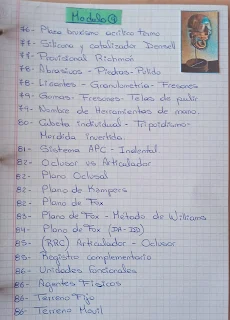 Modulo 4
76- Placa bruxismo acrílico termo
77- Silicona y catalizador Densell
77- Provisional Richmon
78- Abrasivos - Piedras - Pulido
78- Lisantes - Granulometría - Fresones
79- Gomas - Fresones - Telas de pulir
79- Nombre de Herramientas de mano.
80- Cubeta individual - Tripoidismo.
Mordida invertida.
81- Sistema APC - Indental
82- Oclusor vs Articulador
82- Plano Oclusal
82- Plano de Kampers
82- Plano de Fox
83- Plano de Fox - Método de Williams
84- Plano de Fox (DA-DD)
85- (RRC) Articulador - Oclusor
85- Registro complementario
86- Unidades Funcionales
86- Agentes Físicos
86- Terreno Fijo
86- Terreno Movil